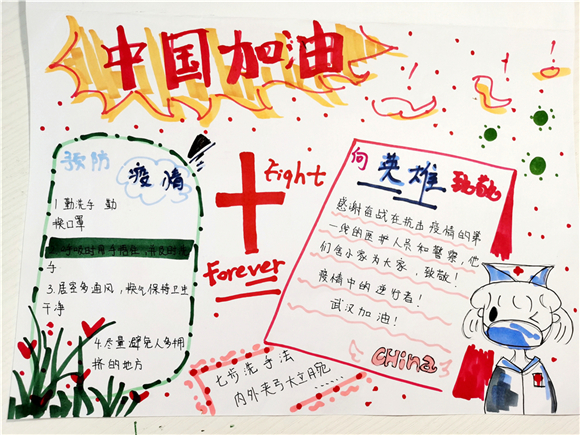 中国加油
预防
疫情
1.勤洗手 勤
换口罩
手
3.居室多通风，换气保持卫生
干净
4.尽量避免人多拥
挤的地方
Fight
Forever
向英雄致敬
感谢奋战在抗击疫情的第
一线的医护人员和警察，他
们舍小家为大家，致敬！
疫情中的逆行者！
武汉加油！
CHina
七步洗手法
内外夹弓大立腕